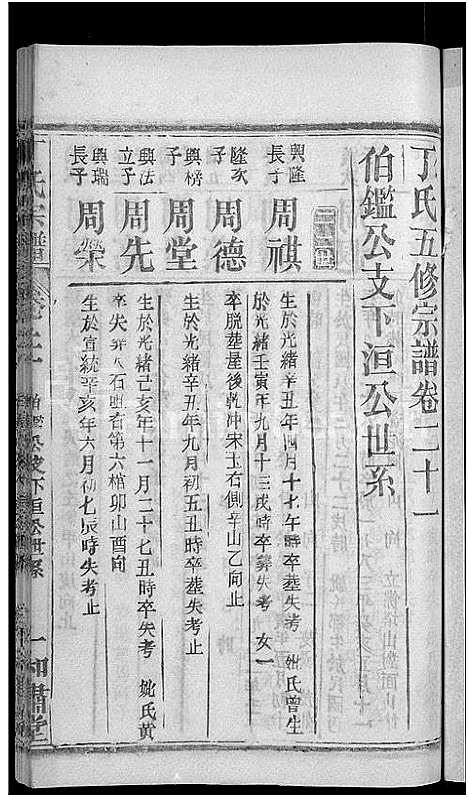 丁氏五修宗譜卷二十一
伯鑑公支下洹公世系
二十三世
興隆
長子
周祺
生於光緒辛丑年四月十七午時卒葬失考 妣氏曾生
於光緒壬寅年九月十三戌時卒葬失考 女一
隆次
子
周德
卒脫葬屋後乾冲宋玉右側辛山乙向止
興榜
子
周堂
生於光緒辛丑年九月初五丑時卒葬失考止
興法
立子
周先
生於光緒己亥年十一月二十七丑時卒失考 妣氏黃
卒失葬大石嘴右第六棺卯山酉向
興瑞
長子
周榮
生於宣統辛亥年六月初七辰時失考止
丁氏宗譜
伯鑑公支下洹公世系
一